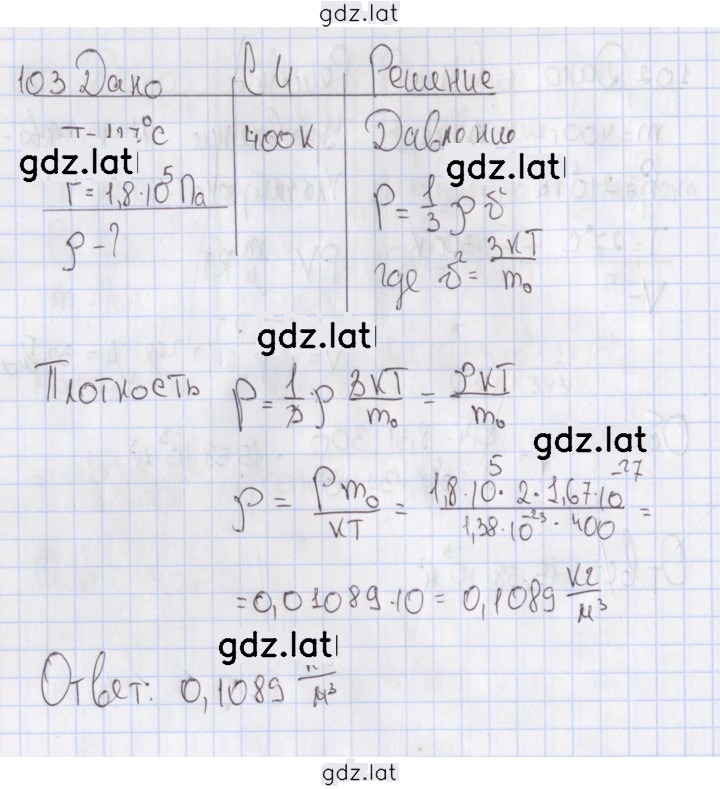 gdz.lat
103 Дано СИ Решение
-127°C 400K Давление
gdz.lat gdz.lat
= 1,8·10⁵ Па
P = 1/3 ρ υ²
ρ - ?
где υ² = 3кТ/m₀
gdz.lat
Плотность P = 1/3 · ρ 3кТ/m₀ = ρкТ/m₀
gdz.lat
ρ = Pm₀/кТ = 1,8·10⁵·2·1,67·10⁻²⁷/1,38·10⁻²³·400 =
= 0,01089·10 = 0,1089 кг/м³
gdz.lat
Ответ: 0,1089 /м³
gdz.lat